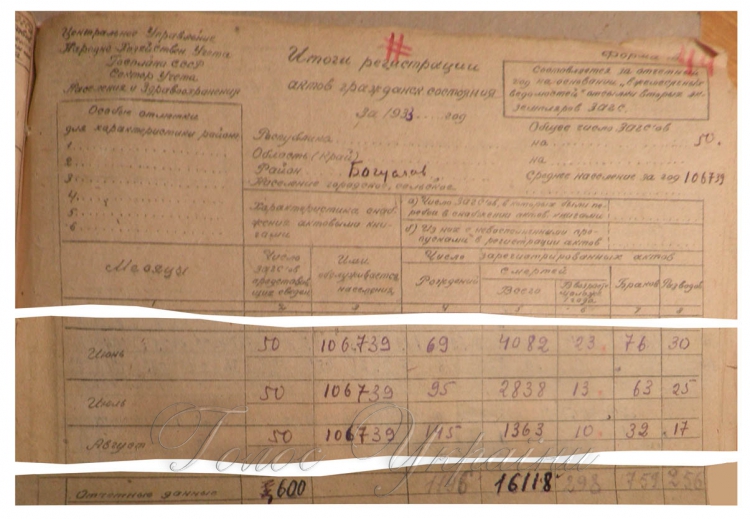 Центральное Управление
Народно Хозяйствен Учета
Госплана СССР
Сектор Учета
Населения и Здравоохранения
Итоги регистрации
актов гражданск состояния
За 1933 год
Форма №
44
Составляется за отчетный
год на основании
ведомостей
ЗАГС.
Особые отметки
для характеристики района
1
2
3
4
5
6
Республика
Область (край)
Район Богуслав
Население городское, сельское
Общее число ЗАГС'ов
на 50.
на
Среднее население за год 106739
Характеристика снаб-
жения актовыми кни-
гами
а) Число ЗАГС'ов, в которых были пе-
б) Из них с
пусками в регистрации актов
Месяцы
Число
ЗАГС'ов
Ими
обслуживается
населения
Число зарегистрированных актов
Рождений
Смертей
Всего
Браков
Разводов
1 2 3 4 5 6 7 8
Июнь 50 106.739 69 4082 23 76 30
Июль 50 106739 95 2838 13 63 25
Август 50 106739 145 1363 10 32 17
Голос України
Отчетные данные 600 16118 298 759 256